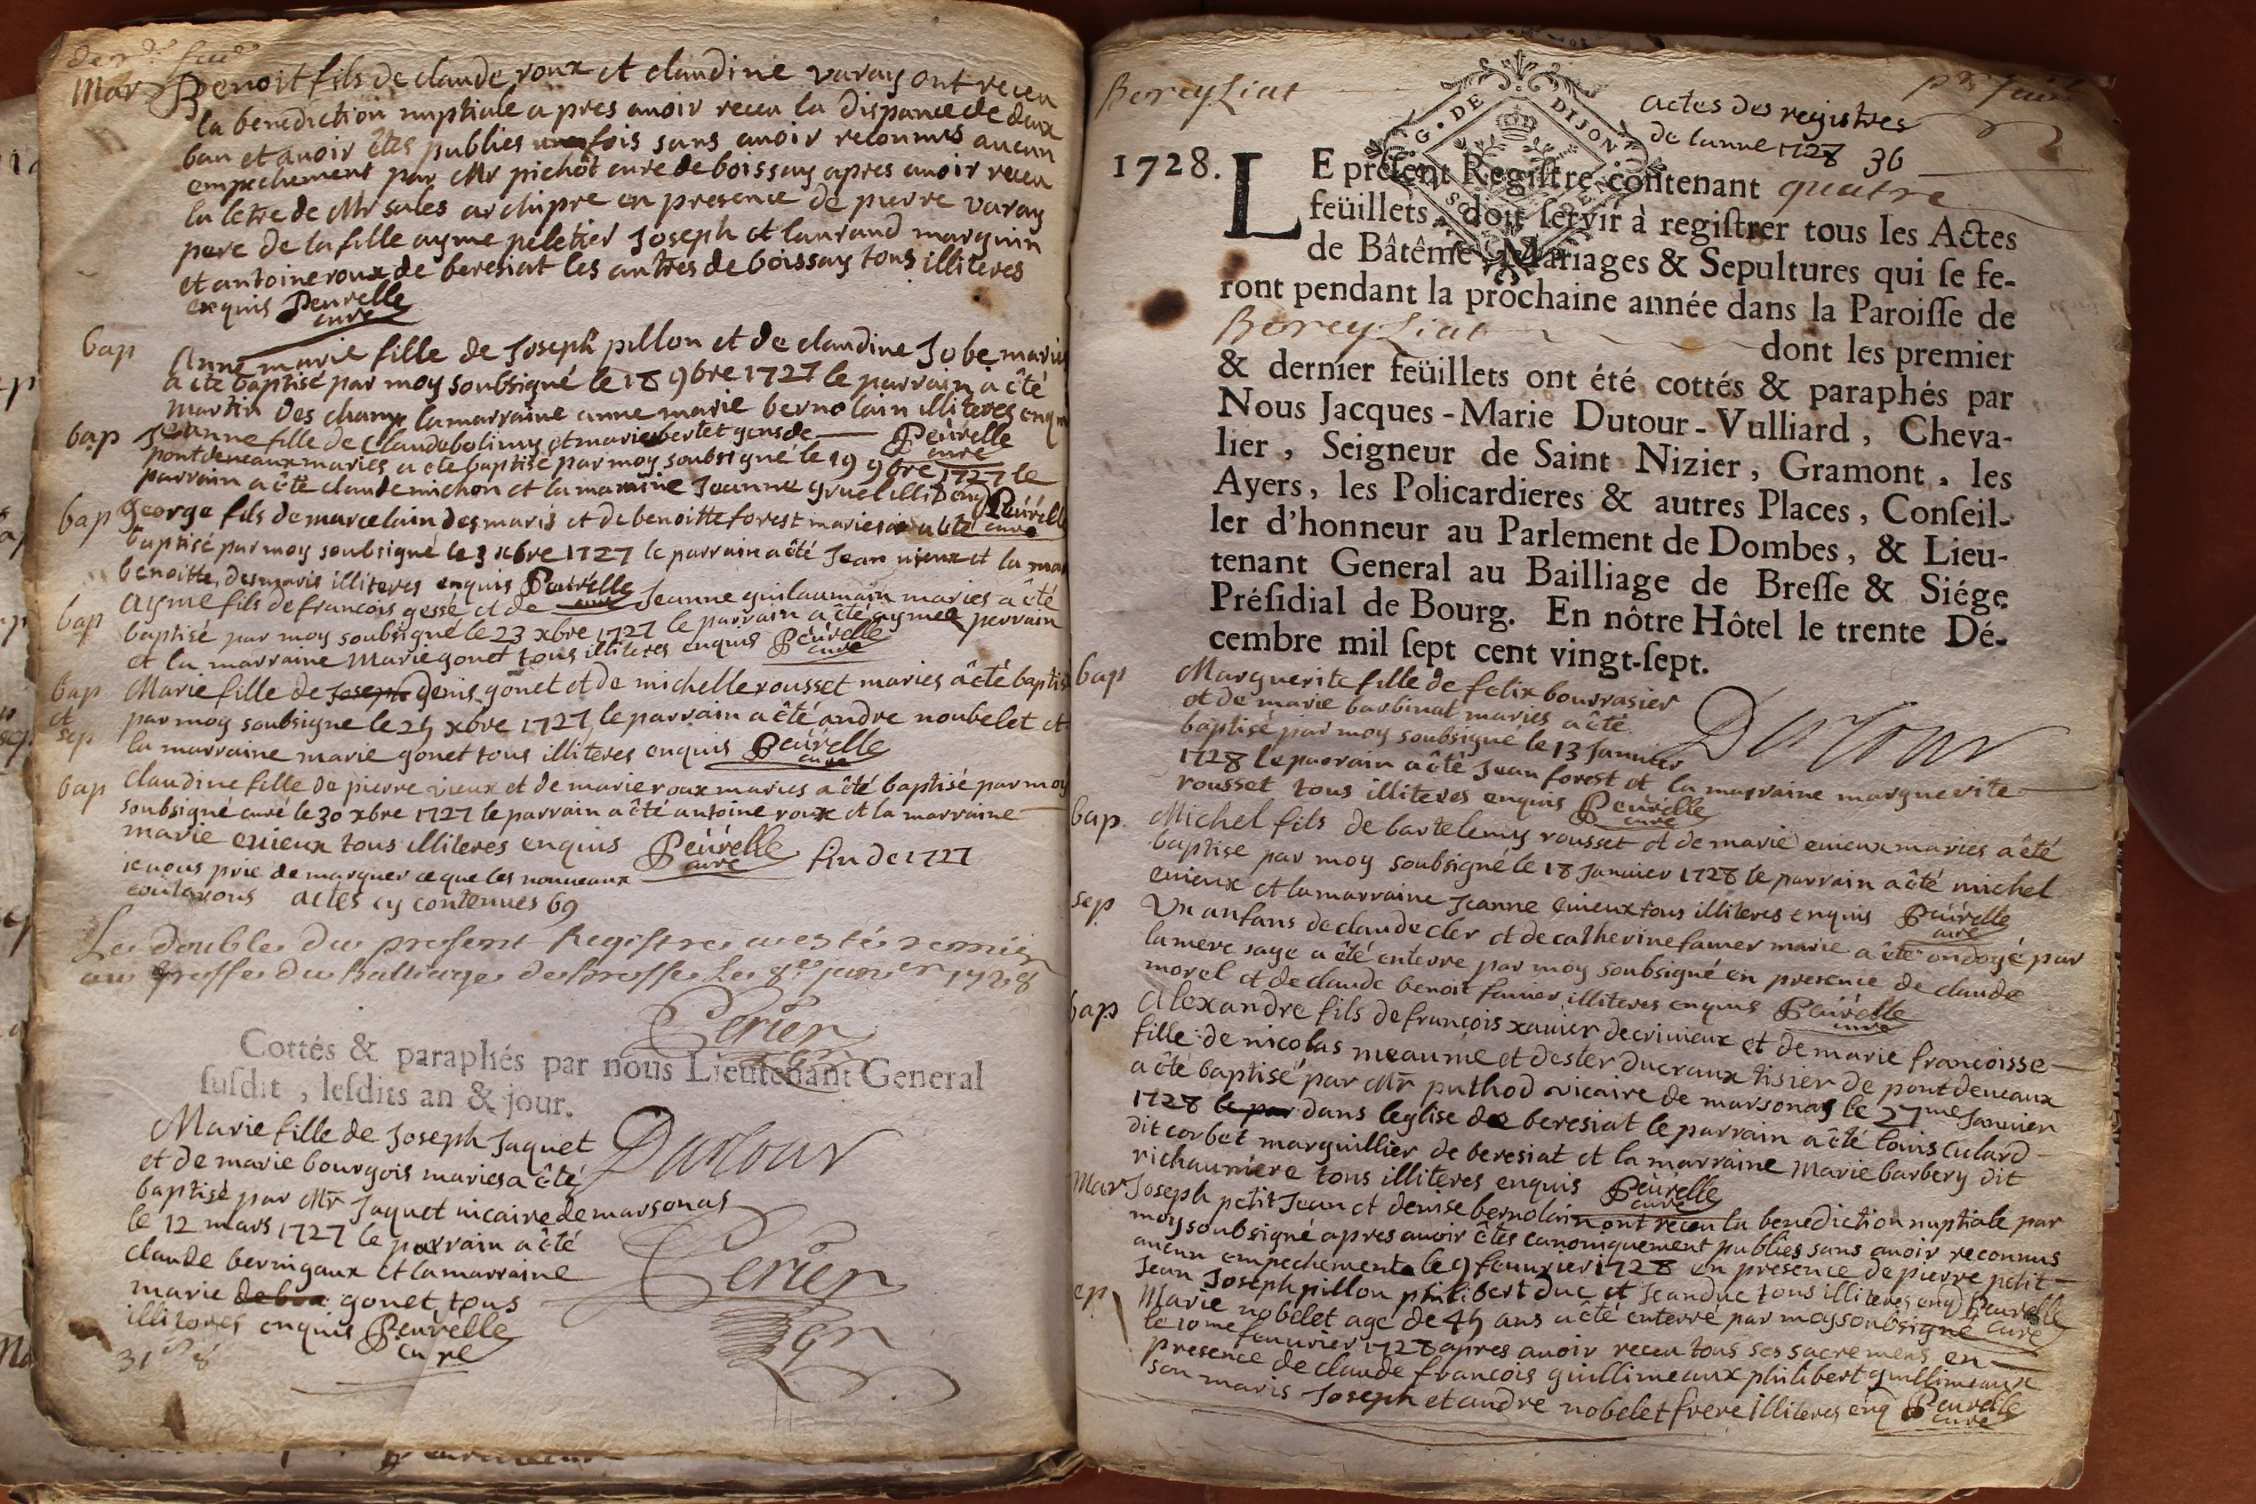 Mar Benoit fils de claude roux et claudine varay ont receu
la benediction nuptiale a pres avoir receu la dispance de deux
ban et avoir êtes publies une fois sans avoir reconnus aucun
empechement par Mr pichôt cure de boissay apres avoir receu
la letre de Mr sales archipre en presence de pierre varay
pere de la fille ayme peletier Joseph et laurand marguin
et antoine roux de beresiat les antres de boissay tous illiteres
enquis Peuvrelle
cure
bap Anne marie fille de Joseph pillon et de claudine Jobe maries
a ete baptisé par moy soubsigné le 18 9bre 1727 le parrain a êté
martin des champ la marraine anne marie bernolain illiteres enq
bap Jeanne fille de Claude bolimy et marie bertet gens de Peuvrelle
cure
pontdeveaux maries a ete baptisé par moy soubsigné le 19 9bre 1727 le
parrain a êté claude michon et la maraine Jeanne gruel illit enq Peuvrelle
cure
bap george fils de marcelain desmaris et de benoitte forest maries a ete
baptisé par moy soubsigné le 3 xbre 1727 le parrain a êté Jean vieux et la mar
benoitte desmaris illiteres enquis Peuvrelle
cure
bap ayme fils de francois gessé et de Jeanne guilaumain maries a êté
baptisé par moy soubsigné le 23 xbre 1727 le parrain a êté aymee perrain
et la marraine Marie gonet tous illiteres enquis Peuvrelle
cure
bap et sep Marie fille de Joseph denis gonet et de michelle rousset maries a êté baptisé
par moy soubsigne le 25 xbre 1727 le parrain a êté andre noubelet et
la marraine marie gonet tous illiteres enquis Peuvrelle
cure
bap claudine fille de pierre vieux et de marie roux maries a êté baptisé par moy
soubsigné curé le 30 xbre 1727 le parrain a êté antoine roux et la marraine
marie evieux tous illiteres enquis Peuvrelle
cure fin de 1727
ie vous prie de marquer ce que les nouveaux
couterons actes cy contenues 69
Le double du present Registre a esté remis
au greffe du Balliage de Bresse Le 8e janer 1728
Perier
Cottés & paraphés par nous Lieutenant General
susdit, lesdits an & jour.
Marie fille de Joseph Jaquet
et de marie bourgois maries a êté
baptisé par Mr Jaquet vicaire de marsonas
le 12 mars 1727 le parrain a êté
claude bernigaux et la marraine
marie gonet tous
illiteres enquis Peuvrelle
cure
Dutour
Perier
Bereyziat
actes des registres
de lanne 1728 36
G. DE DIJON
1728. LE présent Registre contenant quatre
feüillets, doit servir à registrer tous les Actes
de Bâtême, Mariages & Sepultures qui se fe-
ront pendant la prôchaine année dans la Paroisse de
Bereyziat dont les premier
& dernier feüillets ont été cottés & paraphés par
Nous Jacques-Marie Dutour-Vulliard, Cheva-
lier, Seigneur de Saint Nizier, Gramont, les
Ayers, les Policardieres & autres Places, Conseil-
ler d'honneur au Parlement de Dombes, & Lieu-
tenant General au Bailliage de Bresse & Siége
Présidial de Bourg. En nôtre Hôtel le trente Dé-
cembre mil sept cent vingt-sept.
Dutour
bap Marguerite fille de felix bourrasier
et de marie barbinat maries a êté
baptisé par moy soubsigne le 13 Janvier
1728 le parrain a êté Jean forest et la marraine marguerite
rousset tous illiteres enquis Peuvrelle
cure
bap Michel fils de bartelemy rousset et de marie evieux maries a êté
baptise par moy soubsigné le 18 Janvier 1728 le parrain a êté michel
evieux et la marraine Jeanne evieux tous illiteres enquis Peuvrelle
cure
sep Un anfans de claude cler et de catherine famer marie a êté ondoyé par
la mere sage a êté enterre par moy soubsigné en presence de claude
morel et de claude benoit famier illiteres enquis Peuvrelle
cure
bap Alexandre fils de françois xavier decrivieux et de marie francoisse
fille de nicolas meaume et dester ducraux tisier de pontdeveaux
a êté baptisé par Mr puthod vicaire de marsonay le 27me Janvier
1728 le par dans leglise de beresiat le parrain a êté louis Culard
dit corbet marguillier de beresiat et la marraine Marie barbery dit
richauniere tous illiteres enquis Peuvrelle
cure
Mar Joseph petit Jean et denise bernolain ont receu la benediction nuptiale par
moy soubsigné apres avoir êtes canoniquement publies sans avoir reconnus
aucun empechement le 9 feuvrier 1728 en presence de pierre petit
Jean Joseph pillon philibert duc et Jean duc tous illiteres enq Peuvrelle
cure
sep Marie nobelet age de 45 ans a êté enterré par moy soubsigné
le 10me feuvrier 1728 apres avoir receu tous ses sacremens en
presence de claude françois guillimeaux philibert guillimeaux
son maris Joseph et andre nobelet frere illiteres enq Peuvrelle
cure